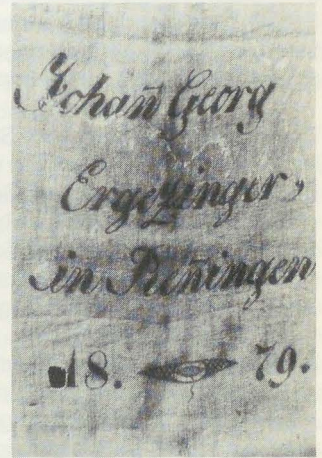 Johan̄ Georg
Ergezinger,
in Ren̄ingen
18. 79.